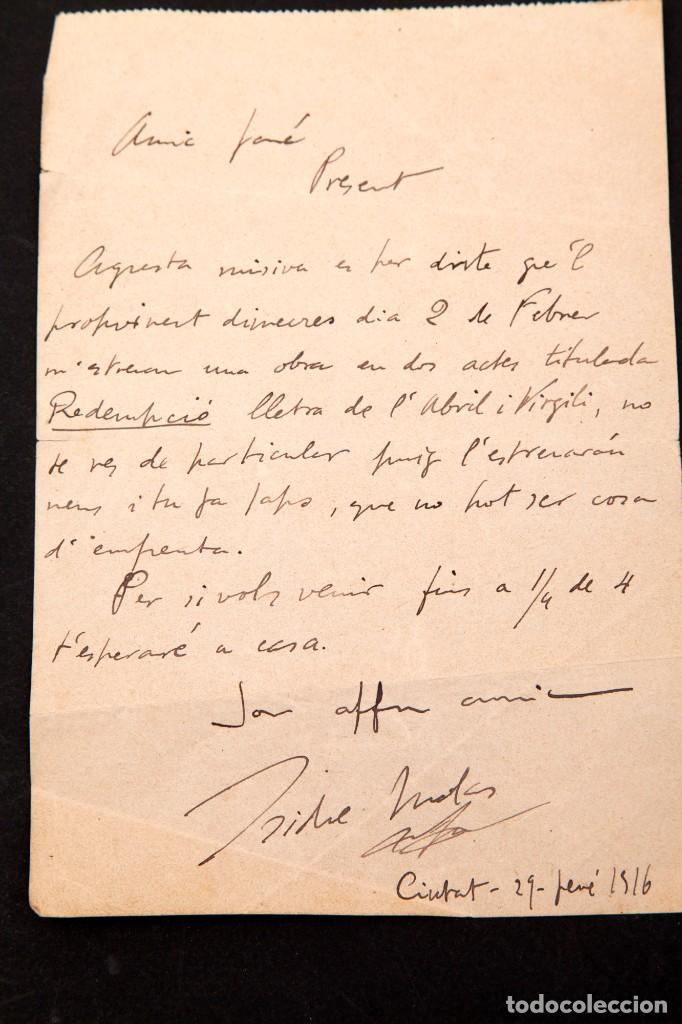 Amic Jané
Present
Aquesta misiva es per dirte que 'l
propvinent dimecres dia 2 de Febrer
m'estrenan una obra en dos actes titulada
Redempció lletra de l'Abril i Virgili, no
te res de particular puig l'estrenarán
nens i tu ja saps, que no pot ser cosa
d'empenta.
Per si vols venir fins a 1/4 de 4
t'esperaré a casa.
Ton affm amic
Isidre Molas
Ciutat - 29 - jené 1916
todocoleccion